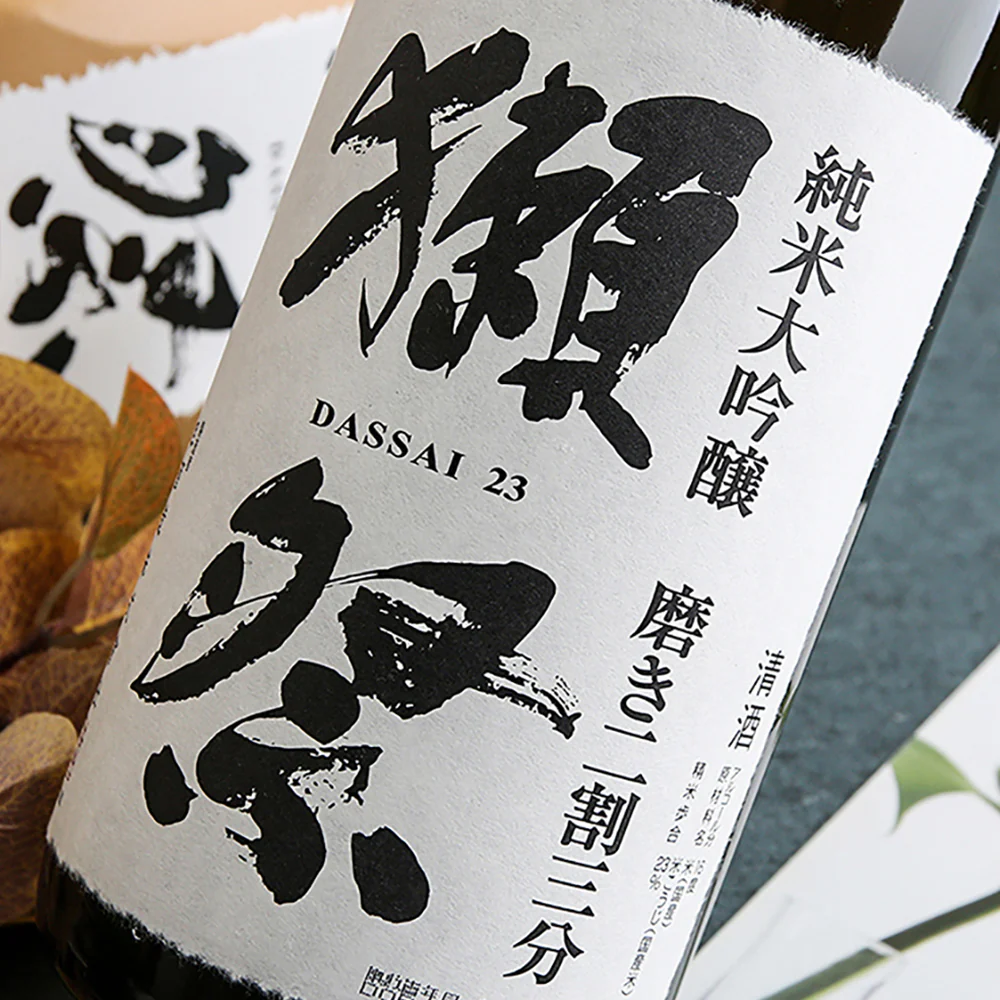 純米大吟醸 磨き二割三分
獺祭
DASSAI 23
清酒
アルコール分 16度
原材料名 米(国産) 米こうじ(国産米)
精米歩合 23%
祭